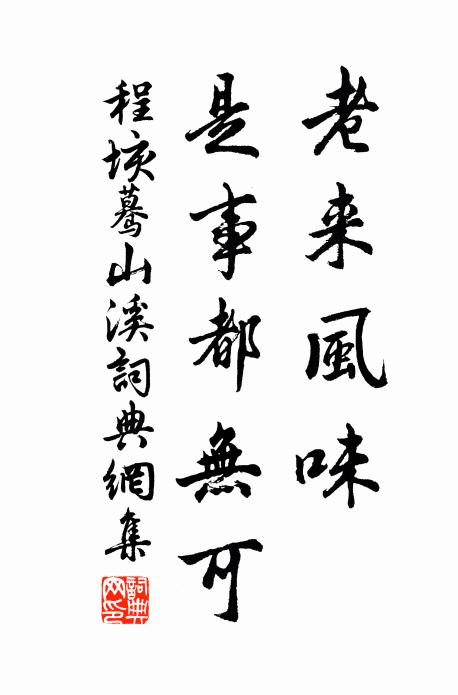 老来風味
是事都無可
程垓驀山溪詞典網集
詞典網印